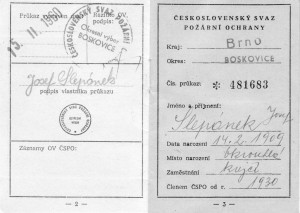 Průkaz
Razítko OV.
15. II. 1960
ČESKOSLOVENSKÝ SVAZ POŽÁRNÍ
Okresní výbor
BOSKOVICE
Josef Štěpánek
podpis vlastníka průkazu
Záznamy OV ČSPO:
— 2 —
ČESKOSLOVENSKÝ SVAZ
POŽÁRNÍ OCHRANY
Kraj: Brno
Okres: BOSKOVICE
Čís. průkaz: * 481683
Jméno a příjmení:
Štěpánek Josef
Datum narození 14.2.1909
Místo narození Okrouhlá
Zaměstnání krejčí
Členem ČSPO od r. 1930
— 3 —